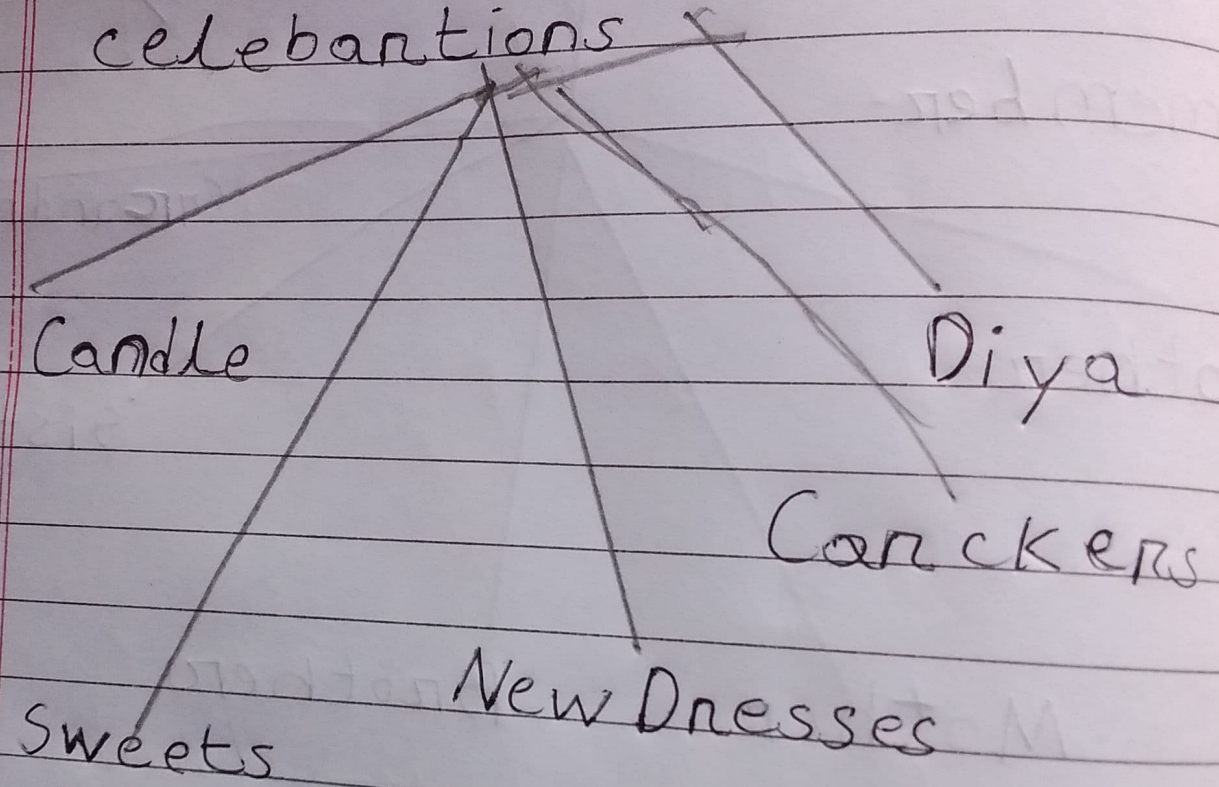 celebartions
Candle
Diya
Carckers
New Dresses
Sweets